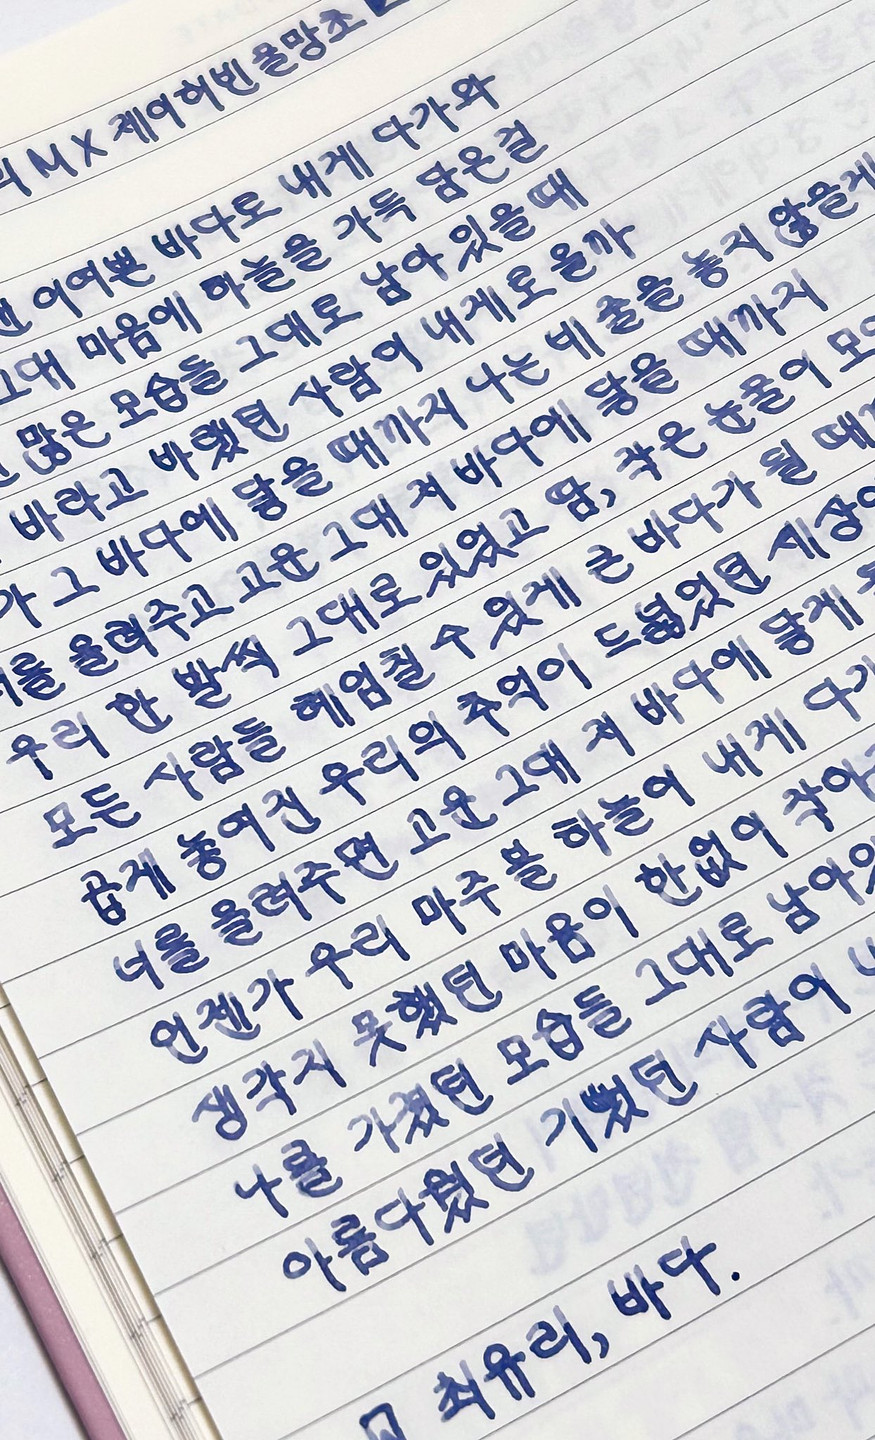 MX 제이허빈 물망초
어여쁜 바다로 내게 다가와
그대 마음에 하늘을 가득 담은걸
많은 모습들 그대로 남아 있을 때
바라고 바랬던 사람이 내게로 올까
가 그 바다에 닿을 때까지 나는 네 손을 놓지 않을게
를 올려주고 고운 그대 저 바다에 닿을 때까지
우리 한 발씩 그대로 있었고 맘, 작은 눈물이 모
모든 사람들 헤엄칠 수 있게 큰 바다가 될 때
곱게 놓여진 우리의 추억이 드넓었던 세상
너를 올려주면 고운 그대 저 바다에 닿게
언젠가 우리 마주 볼 하늘이 내게 다가
생각지 못했던 마음이 한없이 작아
나를 가졌던 모습들 그대로 남아
아름다웠던 기뻤던 사람이
최유리, 바다.